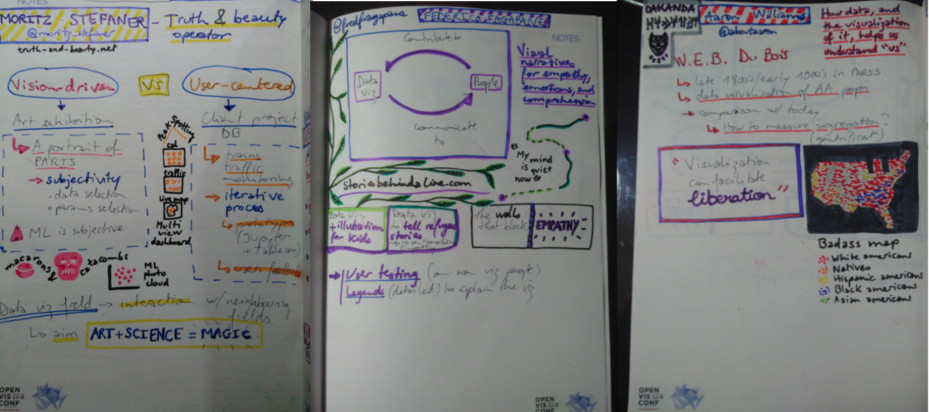 NOTES
MORITZ STEFANER - Truth & beauty
@moritz_stefaner operator
truth-and-beauty.net
Vision-driven VS User-centered
Art exhibition
A portrait of
PARIS
subjectivity
data selection
params selection
ML is subjective
macarons
catacombs
ML
photo
cloud
Spotting
cal
Multi
view
dashboard
Client project
DB
trains
traffic
monitoring
iterative
process
prototype
(Jupyter
+ Tableau)
Data viz field → interaction w/ neighbouring
fields
Lo aim ART+SCIENCE = MAGIC
OPEN
VIS
CONF
@fredfragapane FEDERICA FRAGAPANE
NOTES
Contribute to
Data
Viz
People
Communicate
to
Visual
narratives
for empathy,
emotions, and
comprehension
"My
mind is
quiet
now"
storiesbehindaline.com
Data viz
+ illustration
for kids
Data viz
to tell refugee
stories
The walls
that block
EMPATHY
User testing (on non viz people)
Legends (detailed) to explain the viz
OPEN
VIS
CONF
WAKANDA
Aaron Williams
@aboutaaron
How data, and
the visualization
of it, helps us
understand "us"
W.E.B. Du Bois
late 1800's/early 1900's in PARIS
data visualization of AA people
comparison w/ today
How to measure segregation?
"Visualization
can facilitate
liberation"
Badass map
White americans
Natives
Hispanic americans
Black americans
Asian americans
OPEN
VIS
CONF